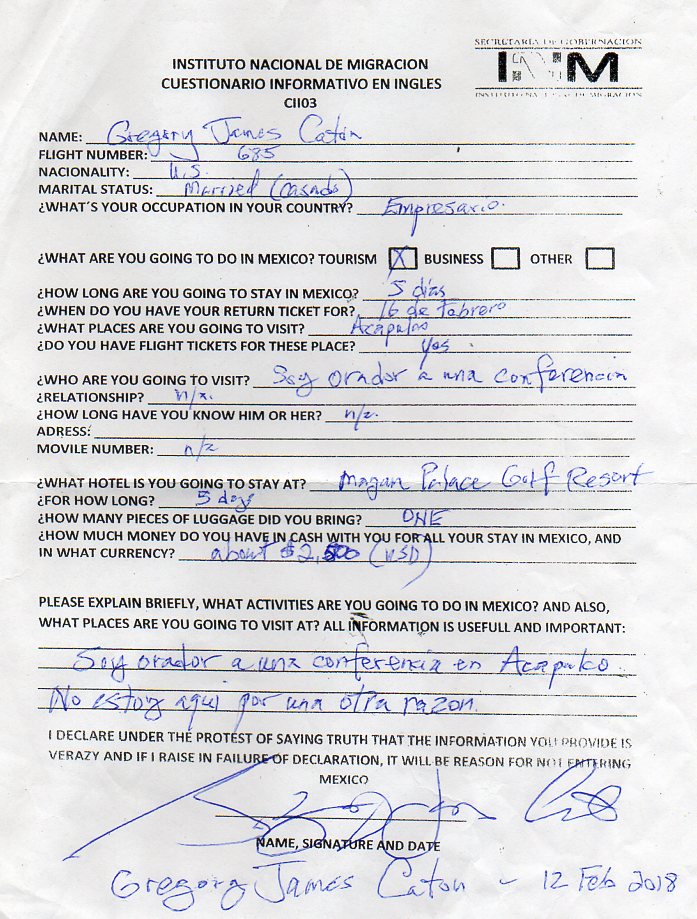 SECRETARÍA DE GOBERNACIÓN
INM
INSTITUTO NACIONAL DE MIGRACIÓN
INSTITUTO NACIONAL DE MIGRACION
CUESTIONARIO INFORMATIVO EN INGLES
CII03
NAME: Gregory James Caton
FLIGHT NUMBER: 685
NACIONALITY: U.S.
MARITAL STATUS: Married (casado)
¿WHAT´S YOUR OCCUPATION IN YOUR COUNTRY? Empresario.
¿WHAT ARE YOU GOING TO DO IN MEXICO? TOURISM X BUSINESS OTHER
¿HOW LONG ARE YOU GOING TO STAY IN MEXICO? 5 días
¿WHEN DO YOU HAVE YOUR RETURN TICKET FOR? 16 de Febrero
¿WHAT PLACES ARE YOU GOING TO VISIT? Acapulco
¿DO YOU HAVE FLIGHT TICKETS FOR THESE PLACE? yes
¿WHO ARE YOU GOING TO VISIT? Soy orador a una conferencia
¿RELATIONSHIP? n/a.
¿HOW LONG HAVE YOU KNOW HIM OR HER? n/a.
ADRESS:
MOVILE NUMBER: n/a
¿WHAT HOTEL IS YOU GOING TO STAY AT? Mayan Palace Golf Resort
¿FOR HOW LONG? 5 days
¿HOW MANY PIECES OF LUGGAGE DID YOU BRING? ONE
¿HOW MUCH MONEY DO YOU HAVE IN CASH WITH YOU FOR ALL YOUR STAY IN MEXICO, AND
IN WHAT CURRENCY? about $2,500 (USD)
PLEASE EXPLAIN BRIEFLY, WHAT ACTIVITIES ARE YOU GOING TO DO IN MEXICO? AND ALSO,
WHAT PLACES ARE YOU GOING TO VISIT AT? ALL INFORMATION IS USEFULL AND IMPORTANT:
Soy orador a una conferencia en Acapulco.
No estoy aqui por una otra razon.
I DECLARE UNDER THE PROTEST OF SAYING TRUTH THAT THE INFORMATION YOU PROVIDE IS
VERAZY AND IF I RAISE IN FAILURE OF DECLARATION, IT WILL BE REASON FOR NOT ENTERING
MEXICO
NAME, SIGNATURE AND DATE
Gregory James Caton - 12 Feb 2018